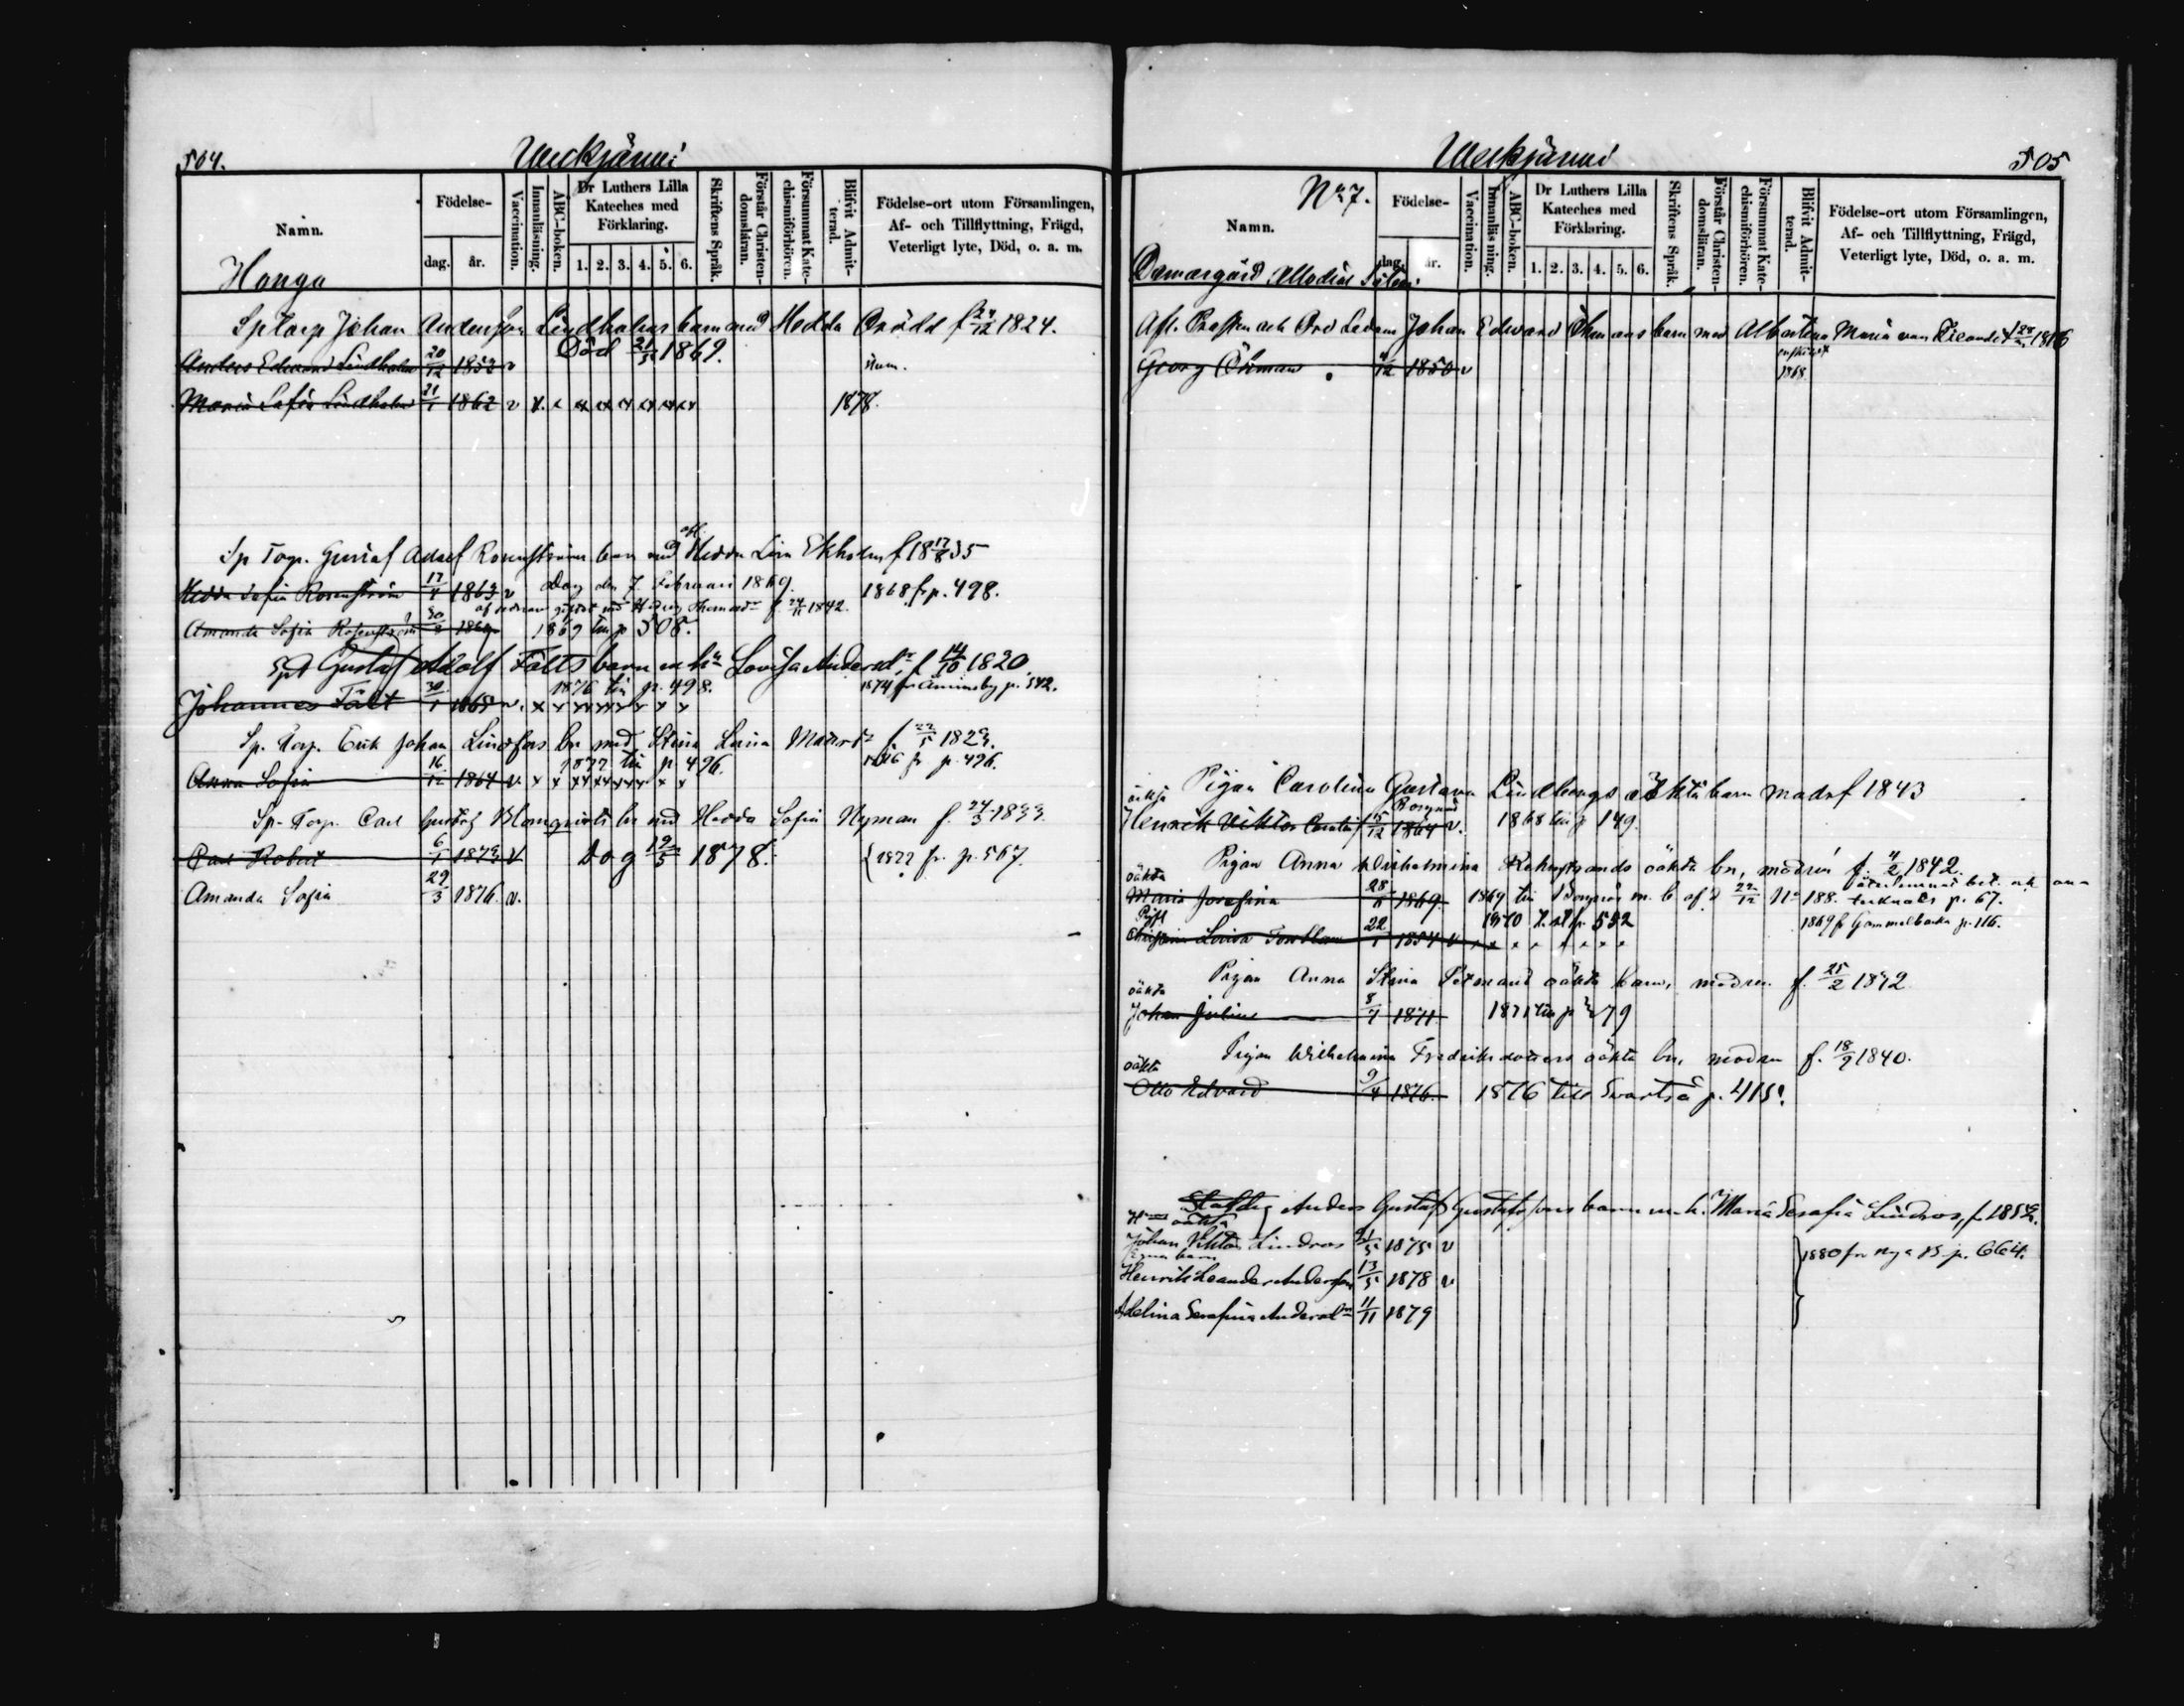 504.
Veckjärvi
Namn.
Födelse-
dag.
år.
Vaccination.
Innanläsning.
ABC-boken.
Dr Luthers Lilla
Kateches med
Förklaring.
1. 2. 3. 4. 5. 6.
Skriftens Språk.
Förstår Christen-
domsläran.
Försummat Kate-
chismiförhören.
Blifvit Admit-
terad.
Födelse-ort utom Församlingen,
Af- och Tillflyttning, Frägd,
Veterligt lyte, Död, o. a. m.
Honga
Sptorp Johan Anderson Lindholms barn med Hedda f 24/12 1824.
Anders Edward Lindholm 20/12 1853 v Död 21/5 1869.
Maria Sofia Lindholm 21/1 1862 v x x x x x x x x 1878.
Sp Torp. Gustaf Adolf Rosenström barn med Hedda Lisa Ekholm f 18 17/8 35
Hedda Sofia Rosenström 17/4 1863 v Dog den 7 Februari 1869. 1868 fr p. 498.
f. 24/11 1842.
Amanda Sofia Rosenström 30/8 1869 1869 till p 508.
Spt Gustaf Adolf Fälts barn m hn Lovisa Andersdr, f 14/10 1820.
1876 till p. 498. 1874 fr p. 542.
Johannes Fält 30/1 1865 v. x x x x x x x x x
Sp. Torp. Erik Johan Lindfors bn med Stina Lovisa Matsdr f 22/5 1823.
1877 till p 496. 1876 fr p. 496.
Anna Sofia 16/12 1864 v. x x x x x x x x x x
Sp. Torp. Carl Gustaf Blomqvists bn med Hedda Sofia Nyman f. 24/3 1833.
Carl Robert 6/1 1873 v Dog 19/5 1878. 1877 fr. p. 567.
Amanda Sofia 29/3 1876. v.
Veckjärvi
505
No 7.
Namn.
Födelse-
dag.
år.
Vaccination.
Innanläsning.
ABC-boken.
Dr Luthers Lilla
Kateches med
Förklaring.
1. 2. 3. 4. 5. 6.
Skriftens Språk.
Förstår Christen-
domsläran.
Försummat Kate-
chismiförhören.
Blifvit Admit-
terad.
Födelse-ort utom Församlingen,
Af- och Tillflyttning, Frägd,
Veterligt lyte, Död, o. a. m.
Domargård Allodial Säteri
Afl. Prosten och Ord Ledam Johan Edward Öhmans barn med Albertina Maria von 1816
Georg Öhman 1850 v 1868
Pigan Carolina Gustava Lindbergs oäkta barn modr f 1843
oäkta
Henrik Viktor 15/12 1864 v. 1868 till p 149.
Pigan Anna Wilhelmina oäkta bn, modren f. 4/2 1842.
oäkta
Maria Josefina 28/8 1869. 1869 till m. b af d 22/12 No 188. p. 67.
Pigfl 1870 till p. 532 1869 fr Gammelbacka p. 116.
Christina Lovisa 22/1 1854 v x x x x x x x
Pigan Anna Stina oäkta barn, modren f. 25/2 1842
oäkta
Johan Julius 8/7 1871. 1871 till p 379
Pigan Wilhelmina Fredriksdotters oäkta bn, modren f. 18/2 1840.
oäkta
Otto Edvard 9/4 1876. 1876 till Svartså p. 415.
Anders Gustaf Gustafssons barn m. h. Maria Serafia Lindroos, f. 1852.
Hns oäkta
Johan Viktor Lindroos 21/5 1875 v
Egna barn 1880 fr nya KB p. 664.
Henrik Leander Andersson 13/5 1878 v
Adelina Serafina Andersdr 11/11 1879